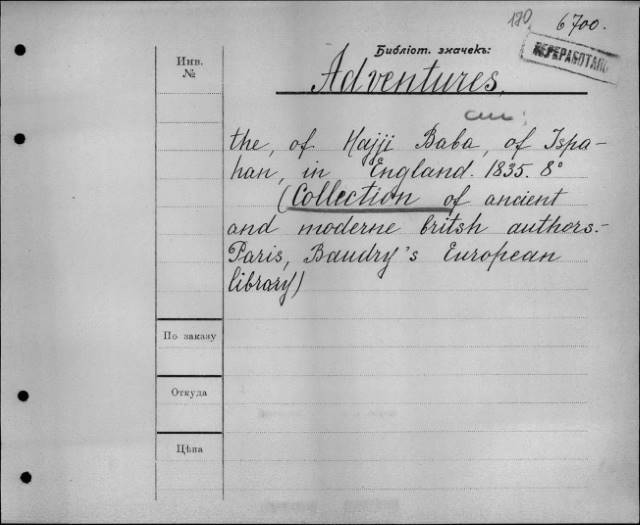 170
6700.
ПЕРЕРАБОТАНО
Библіот. значекъ:
Инв.
№
Adventures,
см:
the, of Hajji Baba, of Ispa-
han, in England. 1835. 8°
(Collection of ancient
and moderne britsh authors.-
Paris, Baudry's European
library)
По заказу
Откуда
Цѣна